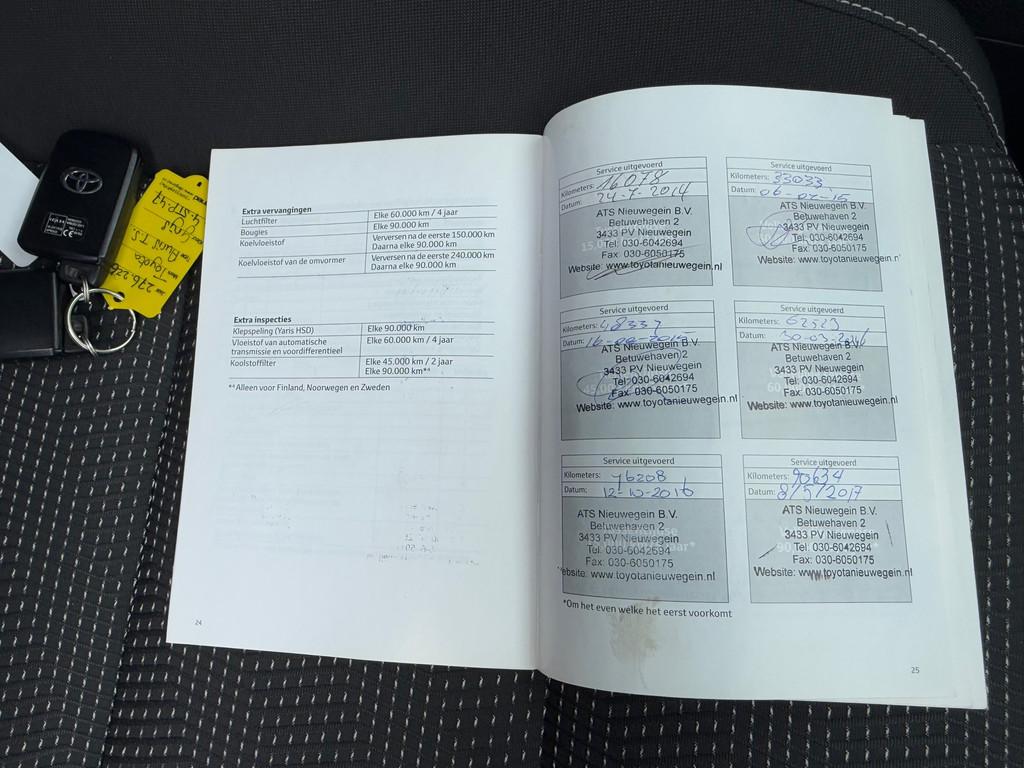 Extra vervangingen
Luchtfilter Elke 60.000 km / 4 jaar
Bougies Elke 90.000 km
Koelvloeistof Verversen na de eerste 150.000 km
Daarna elke 90.000 km
Koelvloeistof van de omvormer Verversen na de eerste 240.000 km
Daarna elke 90.000 km
Extra inspecties
Klepspeling (Yaris HSD) Elke 90.000 km
Vloeistof van automatische transmissie en voordifferentieel Elke 60.000 km / 4 jaar
Koolstoffilter Elke 45.000 km / 2 jaar
Elke 90.000 km**
**Alleen voor Finland, Noorwegen en Zweden
24
Service uitgevoerd
Kilometers: 16078
Datum: 24-7-2014
ATS Nieuwegein B.V.
Betuwehaven 2
3433 PV Nieuwegein
Tel: 030-6042694
Fax: 030-6050175
Website: www.toyotanieuwegein.nl
Service uitgevoerd
Kilometers: 33033
Datum: 06-02-15
ATS Nieuwegein B.V.
Betuwehaven 2
3433 PV Nieuwegein
Tel: 030-6042694
Fax: 030-6050175
Website: www.toyotanieuwegein.n
Service uitgevoerd
Kilometers: 48337
Datum:
ATS Nieuwegein B.V.
Betuwehaven 2
3433 PV Nieuwegein
Tel: 030-6042694
Fax: 030-6050175
Website: www.toyotanieuwegein.nl
Service uitgevoerd
Kilometers: 62529
Datum: 30-03-2016
ATS Nieuwegein B.V.
Betuwehaven 2
3433 PV Nieuwegein
Tel: 030-6042694
Fax: 030-6050175
Website: www.toyotanieuwegein.nl
Service uitgevoerd
Kilometers: 76208
Datum: 12-10-2016
ATS Nieuwegein B.V.
Betuwehaven 2
3433 PV Nieuwegein
Tel: 030-6042694
Fax: 030-6050175
Website: www.toyotanieuwegein.nl
Service uitgevoerd
Kilometers: 90634
Datum: 8/5/2017
ATS Nieuwegein B.V.
Betuwehaven 2
3433 PV Nieuwegein
Tel: 030-6042694
Fax: 030-6050175
Website: www.toyotanieuwegein.nl
*Om het even welke het eerst voorkomt
25
4-STP-47
Grijs
Auris T.S.
Toyota
276.226